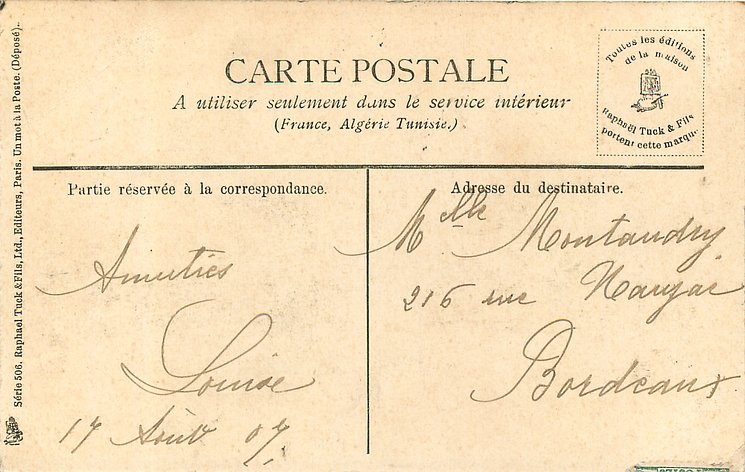 CARTE POSTALE
A utiliser seulement dans le service intérieur
(France, Algérie Tunisie.)
Toutes les éditions
de la maison
Raphaël Tuck & Fils
portent cette marque
Partie réservée à la correspondance.
Amitiés
Louise
17 Août 07.
Adresse du destinataire.
Mlle Montaudry
216 rue Naujac
Bordeaux
Série 506. Raphael Tuck & Fils, Ltd., Editeurs, Paris. Un mot à la Poste. (Déposé).